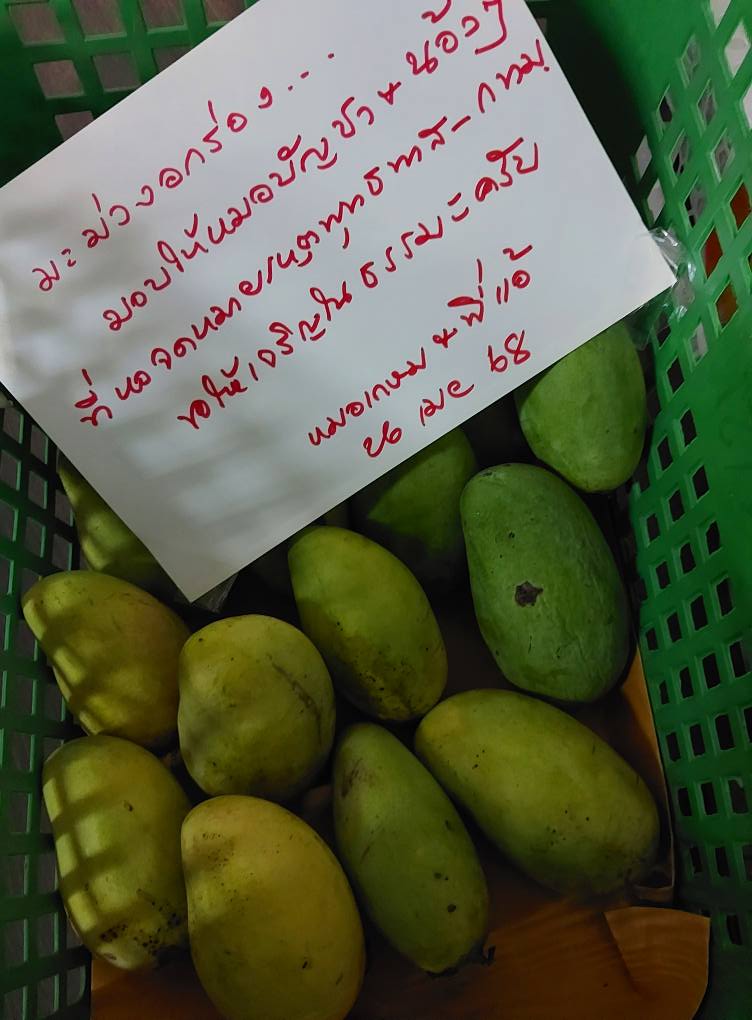 มะม่วงอกร่อง...
มอบให้หมอบัญชา + น้องๆ
ที่หอจดหมายเหตุพุทธทาส - กทม.
ขอให้เจริญในธรรมะครับ
หมอเกษม + พี่แอ้
26 เมย 68